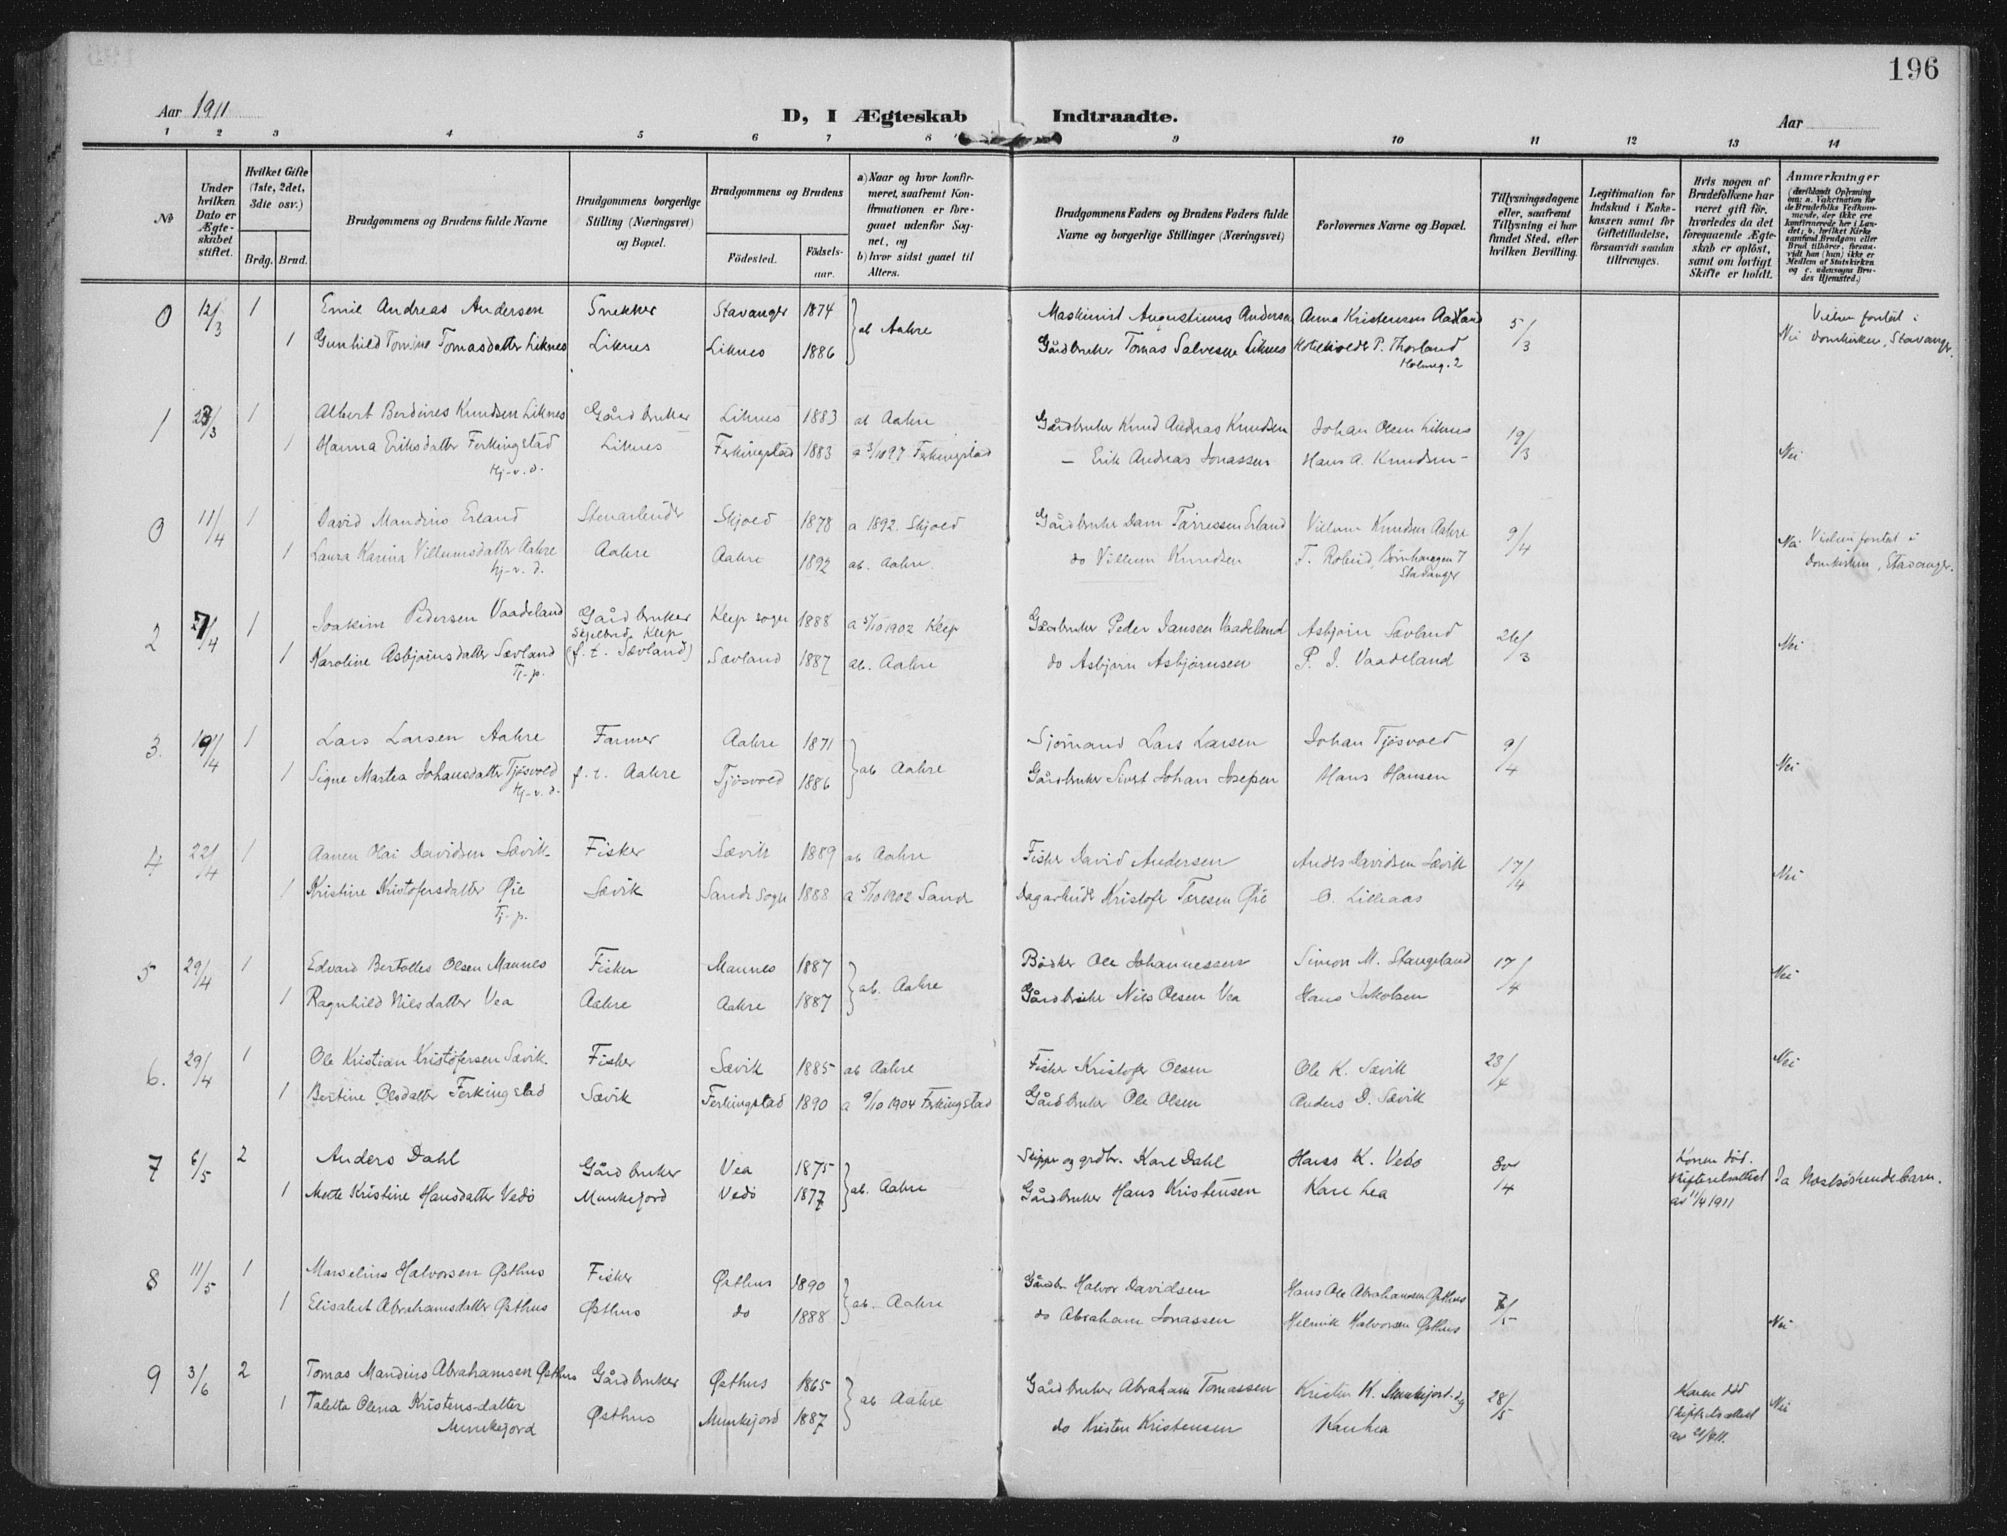 196
Aar 1911
D, I Ægteskab Indtraadte.
Aar
1 2 3 4 5 6 7 8 9 10 11 12 13 14
No
Under hvilken Dato er Ægteskabet stiftet.
Hvilket Gifte (1ste, 2det, 3die osv.)
Brdg. Brud.
Brudgommens og Brudens fulde Navne
Brudgommens borgerlige Stilling (Næringsvei) og Bopæl.
Brudgommens og Brudens
Fødested. Fødselsaar.
a) Naar og hvor konfirmeret, saafremt Konfirmationen er foregaaet udenfor Sognet, og
b) hvor sidst gaaet til Alters.
Brudgommens Faders og Brudens Faders fulde Navne og borgerlige Stillinger (Næringsvei)
Forlovernes Navne og Bopæl.
Tillysningsdagene eller, saafremt Tillysning ei har fundet Sted, efter hvilken Bevilling.
Legitimation for Indskud i Enkekassen samt for Giftetilladelse, forsaavidt saadan tiltrænges.
Hvis nogen af Brudefolkene har været gift før, hvorledes da det foregaaende Ægteskab er opløst, samt om lovligt Skifte er holdt.
Anmærkninger
0 12/3 1 Emil Andreas Andersen Snekker Stavanger 1874 ab Aakre Maskinist Augustinus Andersen Anna Kristensen Aadland 5/3 Nei Vielsen foretat i
1 Gunhild Tomine Tomasdatter Liknes Liknes Liknes 1886 Gårdbruker Tomas Salvesen Liknes P. Thorland Domkirken, Stavanger.
1 23/3 1 Albert Berdines Knudsen Liknes Gårdbruker Liknes 1883 ab Aakre Gårdbruker Knud Andreas Knudsen Johan Olsen Liknes 19/3 Nei
1 Hanna Eriksdatter Ferkingstad Liknes Ferkingstad 1883 a 3/10 97 Ferkingstad — Erik Andreas Jonassen Hans A. Knudsen —
Hj-v. d.
0 11/4 1 David Mandius Erland Stenarbeider Skjold 1878 a 1892. Skjold Gårdbruker Erland Villum Knudsen Aakre 9/4 Nei Vielsen foretat i
1 Laura Karina Villumsdatter Aakre Aakre Aakre 1892 ab. Aakre do Villum Knudsen Stavanger Domkirken, Stavanger.
Hj-v. d.
2 7/4 1 Joakim Pedersen Vaadeland Gårdbruker Klep sogn 1888 a 5/10 1902 Klep Gårdbruker Peder Jansen Vaadeland Asbjørn Sævland 26/3 Nei
1 Karoline Asbjørnsdatter Sævland (f. t. Sævland) Sævland 1887 ab. Aakre do Asbjørn Asbjørnsen P. J. Vaadeland
Tj-p.
3. 19/4 1 Lars Larsen Aakre Farmer Aakre 1871 ab Aakre Sjømand Lars Larsen Johan Tjøsvold 9/4 Nei
1 Signe Martea Johansdatter Tjøsvold f. t. Aakre Tjøsvold 1886 Gårdbruker Sivert Johan Josepsen Hans Hansen
Hj-v. d.
4. 22/4 1 Aanen Olai Davidsen Sævik Fisker Sævik 1889 ab Aakre Fisker David Andersen Anders Davidsen Sævik 17/4 Nei
1 Kristine Kristofersdatter Øie Sævik Sands sogn 1888 a 5/10 1902 Sand Dagarbeider Kristofer Øie O. Lillaas
Tj-p.
5 29/4 1 Edvard Bertolles Olsen Mannes Fisker Mannes 1887 ab. Aakre Bødker Ole Johannessen Simon M. Stangeland 17/4 Nei
1 Ragnhild Nilsdatter Vea Aakre Aakre 1887 Gårdbruker Nils Olsen Vea Hans Jakobsen
6. 29/4 1 Ole Kristian Kristofersen Sævik. Fisker Sævik 1885 ab Aakre Fisker Kristofer Olsen Ole K. Sævik 23/4 Nei
1 Bertine Olsdatter Ferkingstad Sævik Ferkingstad 1890 a 9/10 1904 Ferkingstad Gårdbruker Ole Olsen Anders D. Sævik
7 6/5 2 Anders Dahl Gårdbruker Vea 1875 ab. Aakre Skipper og grdbr. Karl Dahl Hans K. Vedø 30/4 Konen død. Skifteretsattest av 11/4 1911 Ja Næstsøskendebarn.
1 Mette Kristine Hansdatter Vedø Munkejord Vedø 1877 Gårdbruker Hans Kristensen
8 11/5 1 Marselius Halvorsen Østhus Fisker Østhus 1890 ab. Aakre Gårdbr Halvor Davidsen Hans Ole Abrahamsen Østhus 7/5 Nei
1 Elisabet Abrahamsdatter Østhus Østhus do 1888 do Abraham Jonassen Helmik Halvorsen Østhus
9 3/6 2 Tomas Mandius Abrahamsen Østhus Gårdbruker Østhus 1865 ab Aakre Gårdbruker Abraham Tomassen Kristen K. Munkejord 28/5 Konen død Skifteretsattest Nei
1 Taletta Olena Kristensdatter Østhus Munkejord 1887 do Kristen Kristensen
Munkejord